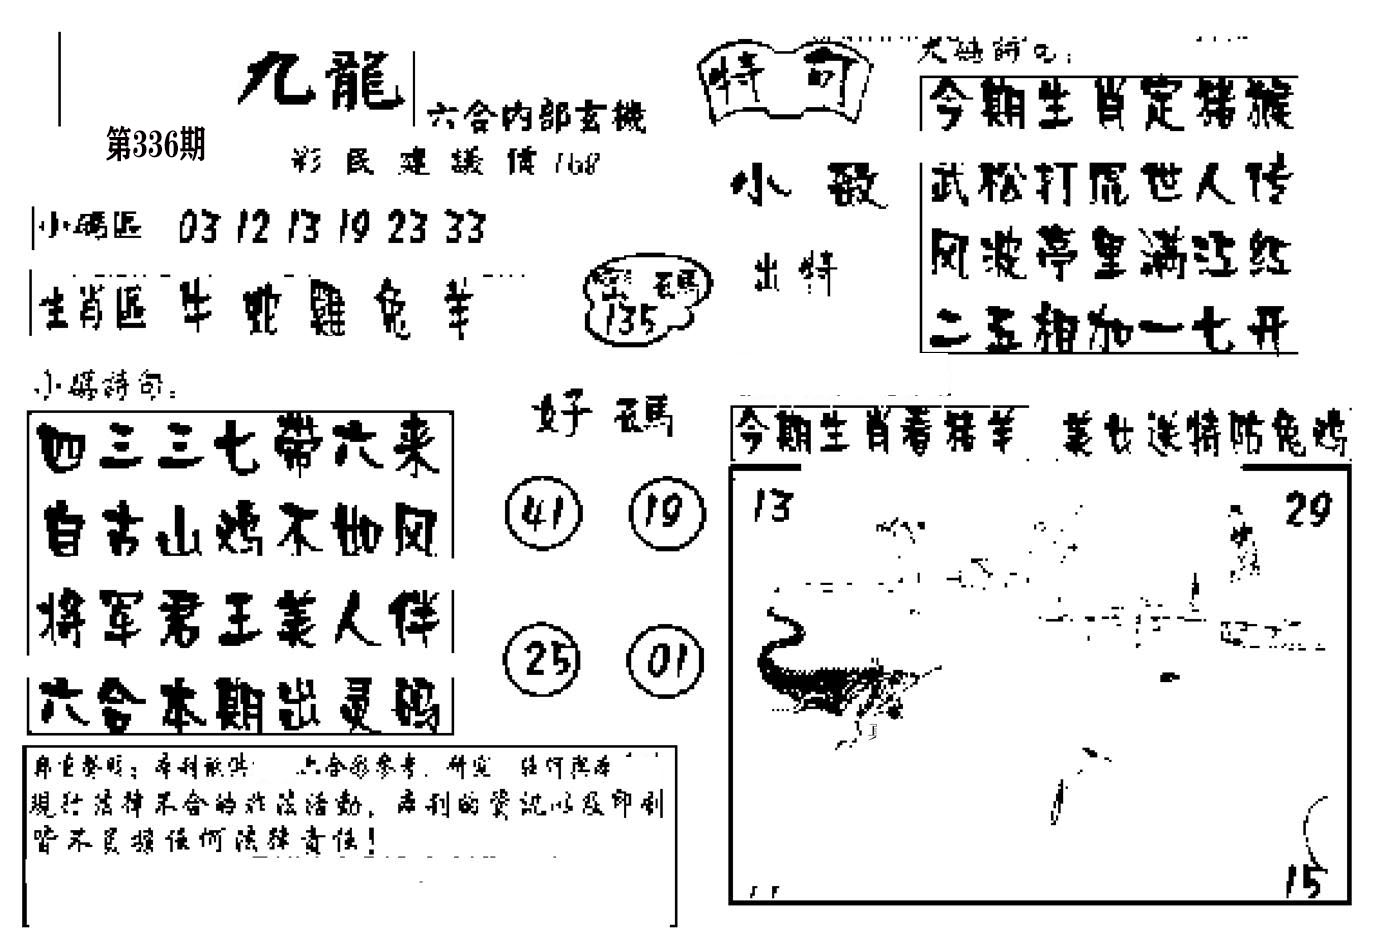 九龍
六合内部玄機
第336期
彩民建議價168
小碼區 03 12 13 19 23 33
生肖區 牛 蛇 雞 兔 羊
特句
小敲
出特
密碼
135
大碼詩句：
今期生肖定猪猴
武松打虎世人传
风波亭里满江红
二五相加一七开
小碼詩句：
四三三七帶六来
自古山鸡不如风
将军君王美人伴
六合本期出灵码
好碼
41 19
25 01
今期生肖看猪羊 美女送特防兔鸡
13 29
15
鄭重聲明：本刊祇供 六合彩參考、研究
現行法律不合的非法活動，本刊的資訊以及印刷
皆不負擔任何法律責任！